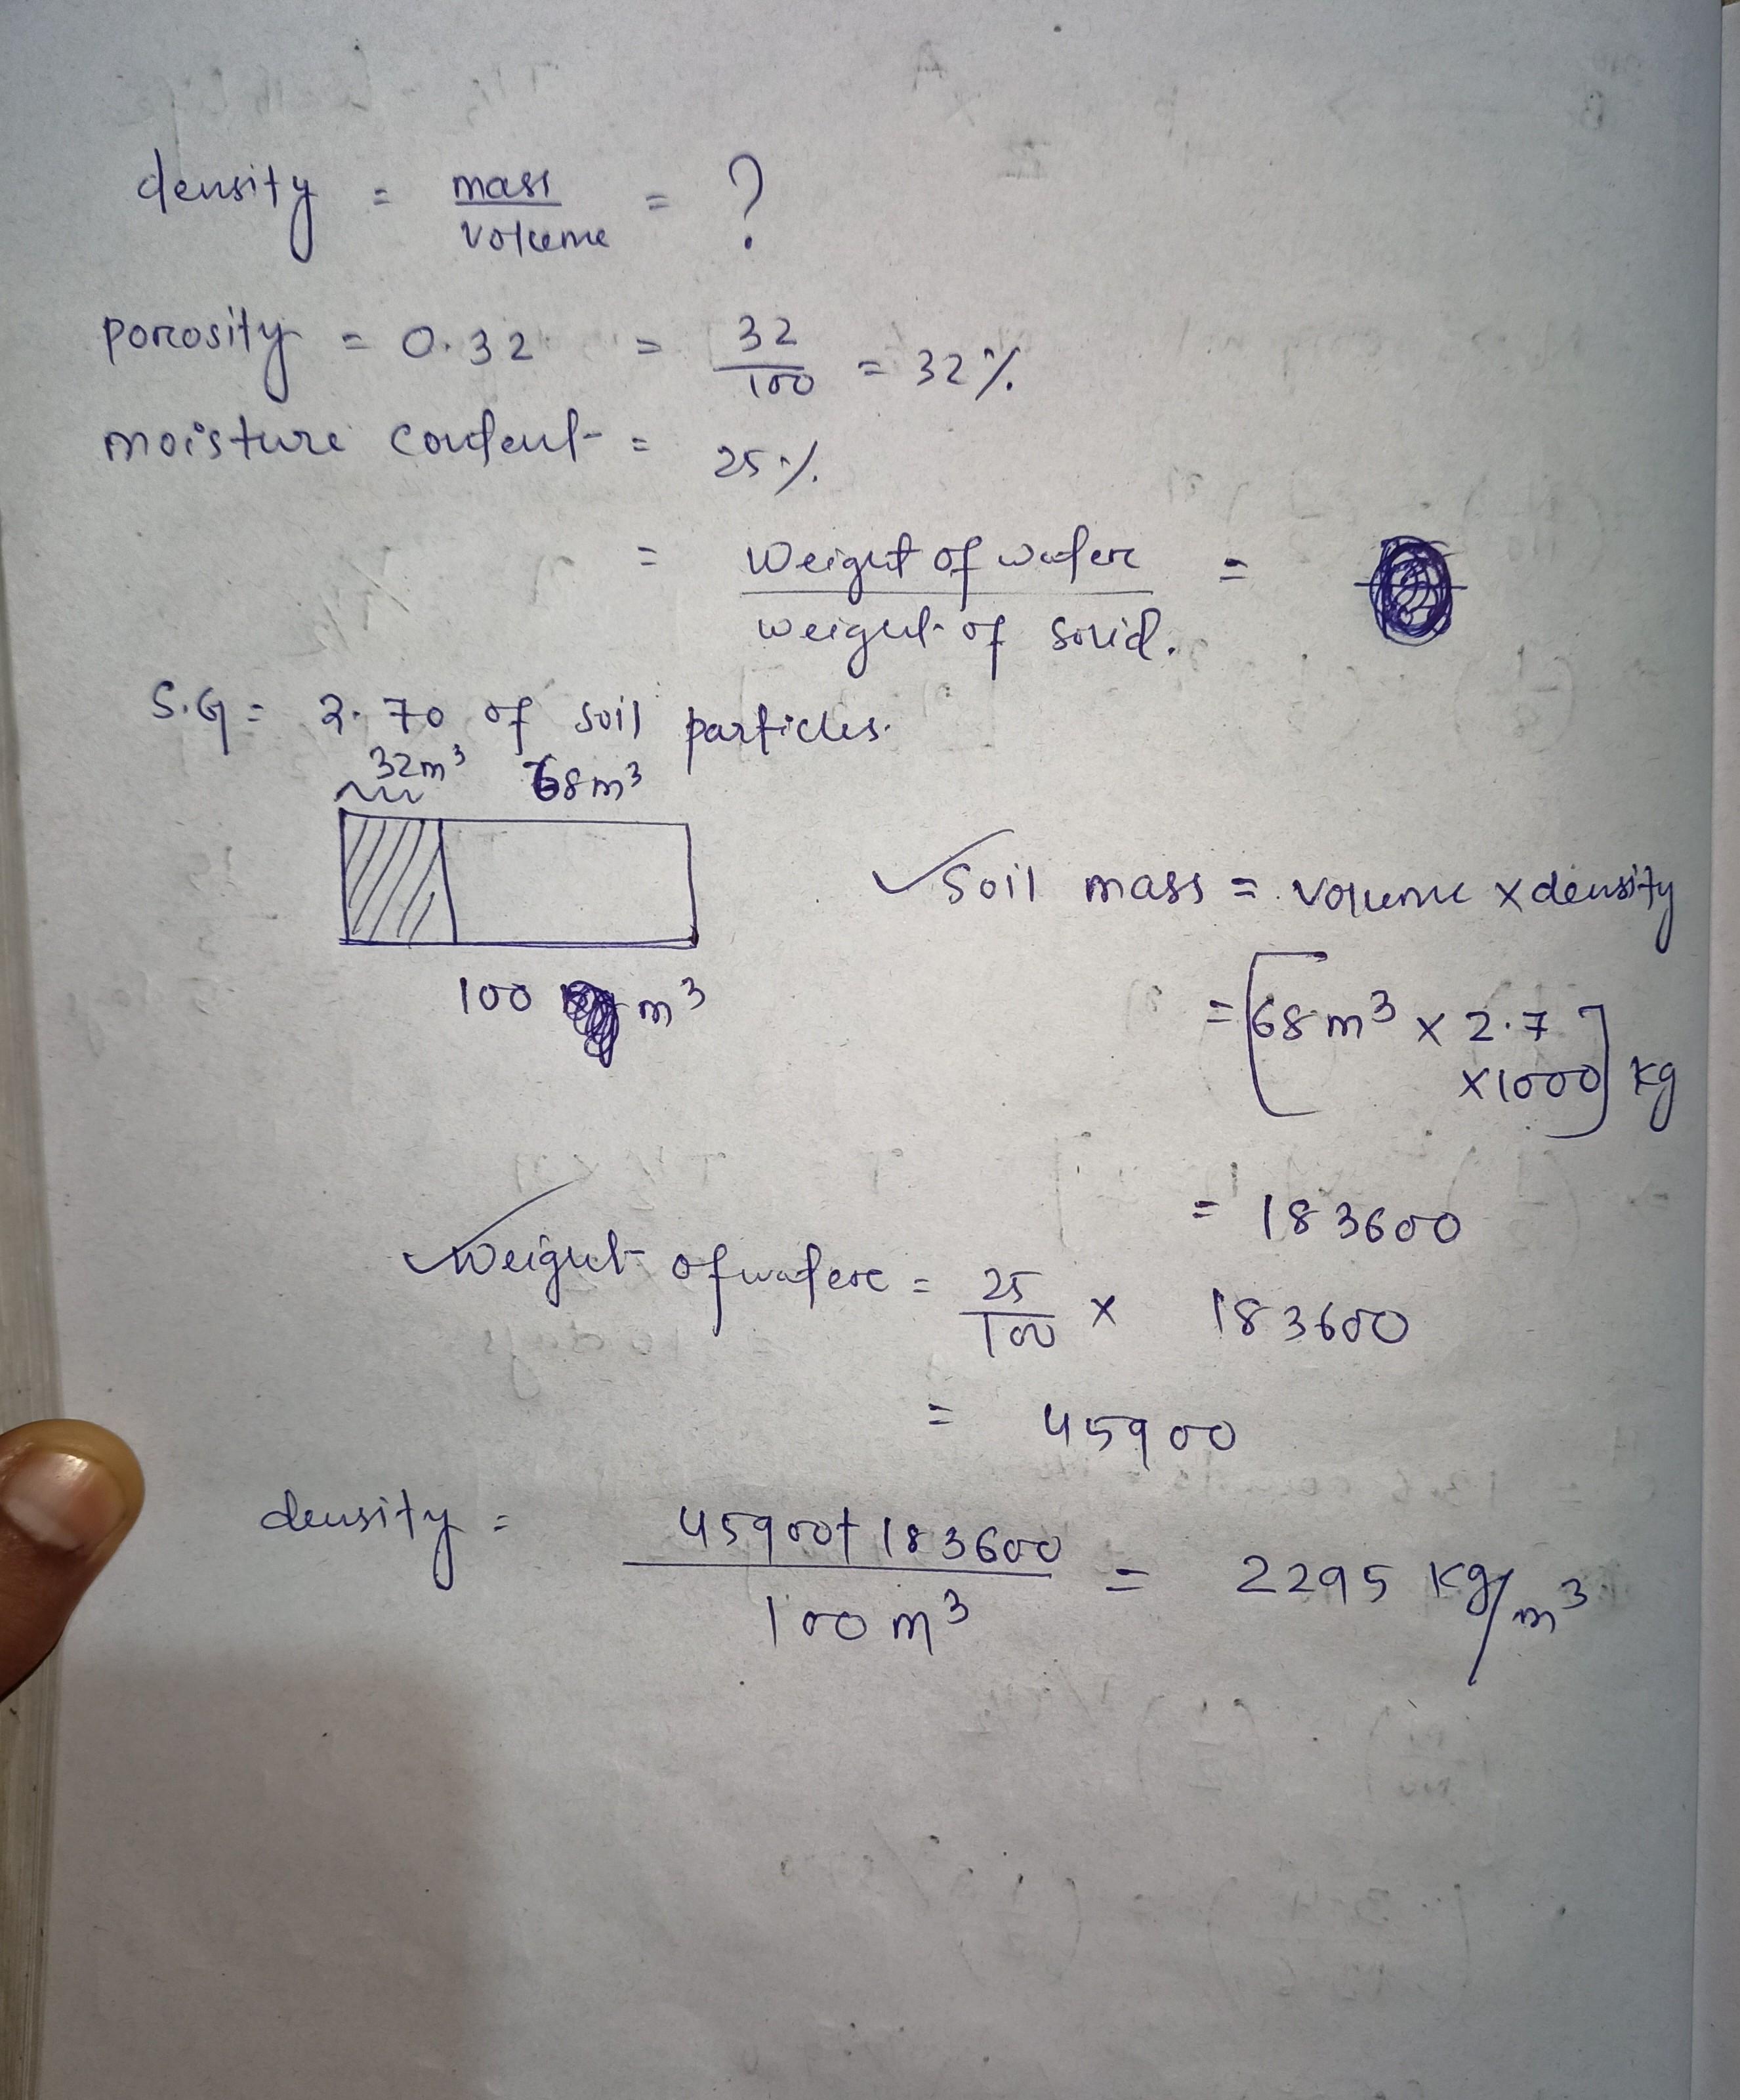 density = mass / volume = ?
porosity = 0.32 = 32 / 100 = 32%
moisture content = 25%
= Weight of water / weight of solid. =
S.G = 2.70 of soil particles.
32m³ 68m³
100 m³
✓ Soil mass = volume x density
= [68m³ x 2.7
x1000] kg
= 183600
✓ Weight of water = 25 / 100 x 183600
= 45900
density = 45900 + 183600 / 100 m³ = 2295 kg/m³